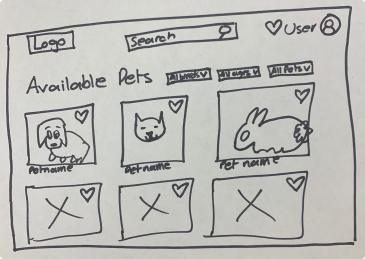 Logo
Search
User
Available Pets
All ages v
All Pets v
Petname
Petname
Pet name